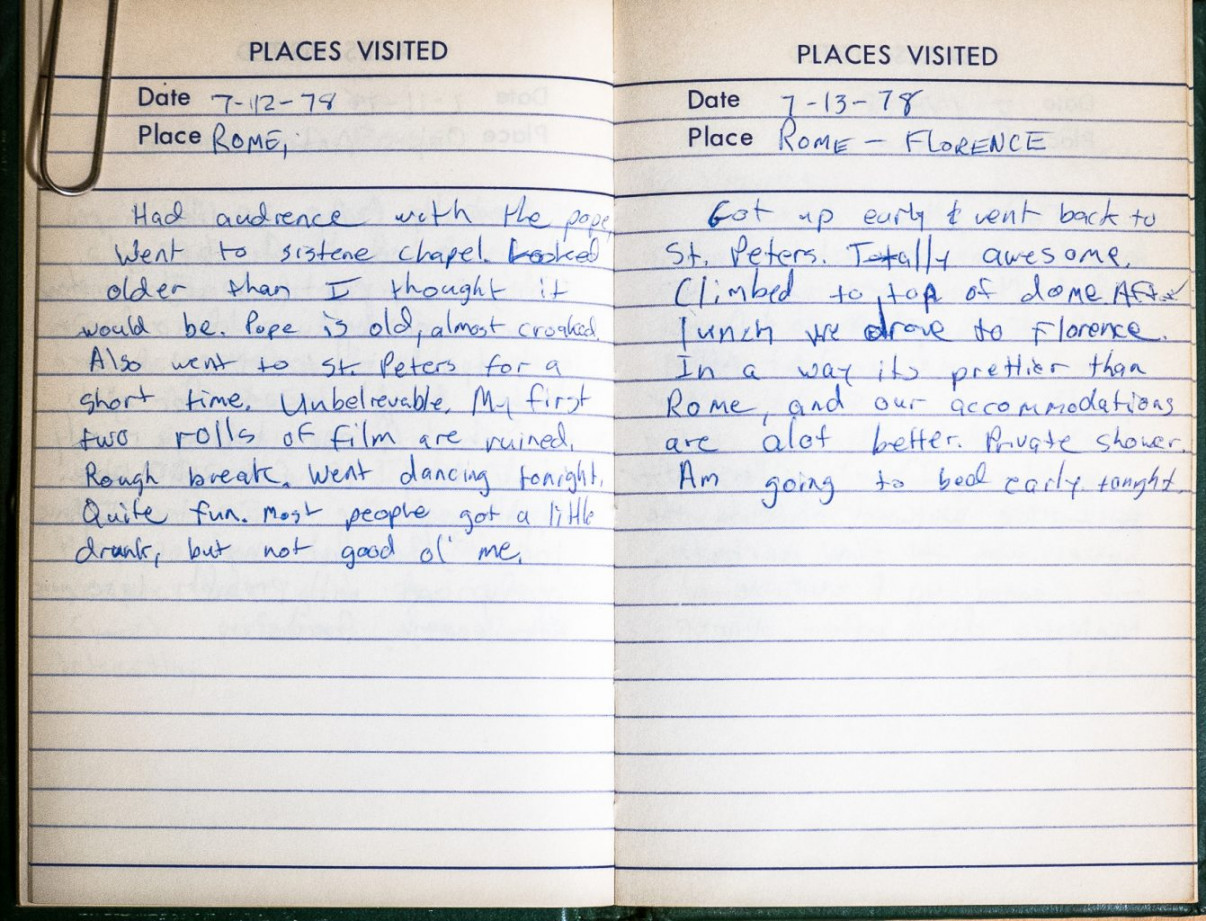 PLACES VISITED
Date 7-12-78
Place ROME,
Had audience with the pope
Went to sistene chapel. Looked
older than I thought it
would be. Pope is old, almost croaked.
Also went to St. Peters for a
short time. Unbelievable. My first
two rolls of film are ruined.
Rough break. Went dancing tonight.
Quite fun. Most people got a little
drunk, but not good ol' me.
PLACES VISITED
Date 7-13-78
Place ROME - FLORENCE
Got up early & went back to
St. Peters. Totally awesome.
Climbed to top of dome After
lunch we drove to Florence.
In a way its prettier than
Rome, and our accommodations
are alot better. Private shower.
Am going to bed early tonight.